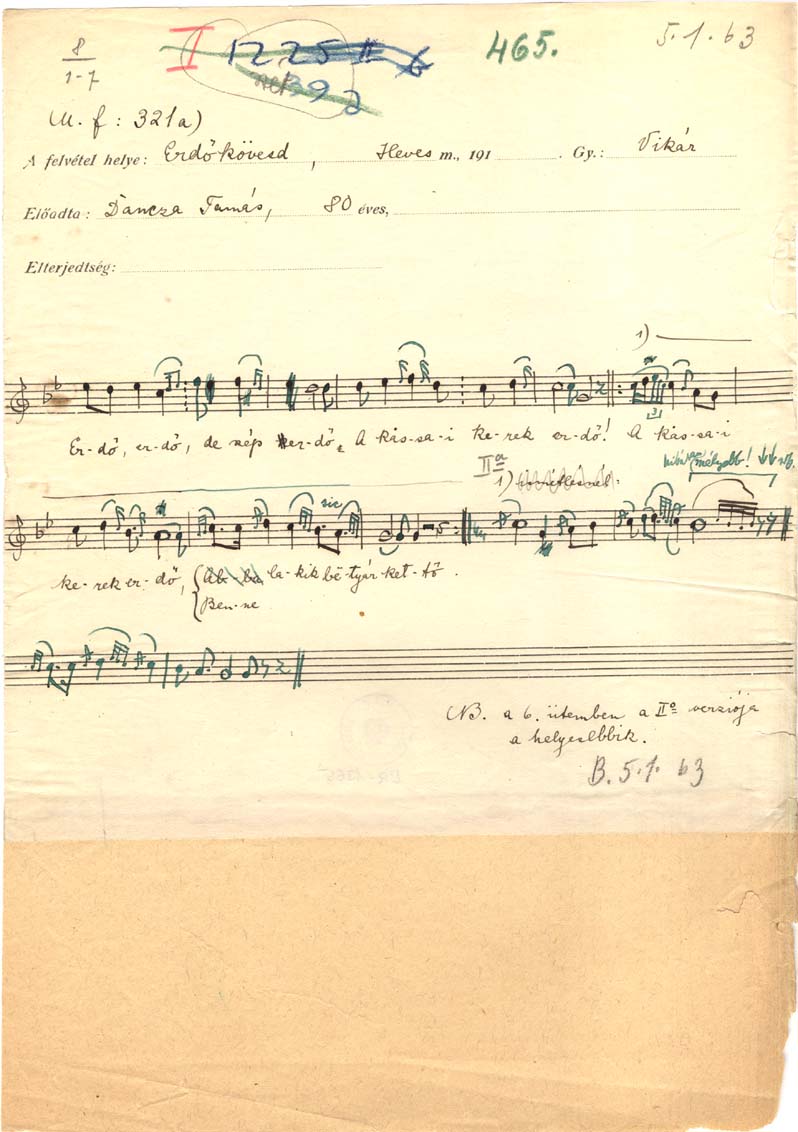 8
1-7
I 1225 II b
465.
5.1.63
392
M. f: 321a)
A felvétel helye: Erdőkövesd, Heves m., 191 . Gy.: Vikár
Előadta: Dancza Tamás, 80 éves,
Elterjedtség:
1)
Er-dő, er-dő, de nép er-dő, A kas-sa-i ke-rek erdő! A kas-sa-i
IIª
1) ismétlésnél:
mélyebb!
sic
ke-rek er-dő, {Ab-ba la-kik bë-tyár ket-tő.
Ben-ne
NB. a 6. ütemben a IIª verziója
a helyesebbik.
B. 5.1.63